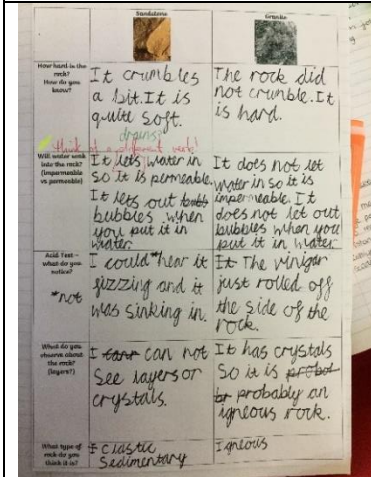 Sandstone
Granite
How hard is the
rock?
How do you
know?
It crumbles
a bit. It is
quite soft.
The rock did
not crumble. It
is hard.
drains?
think of a different verb!
Will water soak
into the rock?
(impermeable
vs permeable)
It lets water in
so it is permeable.
It lets out
bubbles when
you put it in
water.
It does not let
water in so it is
impermeable. It
does not let out
bubbles when you
put it in water.
Acid Test –
what do you
notice?
*not
I could *hear it
fizzing and it
was sinking in.
It The vinigar
just rolled off
the side of the
rock.
What do you
observe about
the rock?
(layers?)
I can not
see layers or
crystals.
It has crystals
So it is
probably an
igneous rock.
What type of
rock do you
think it is?
Clastic
Sedimentary
Igneous